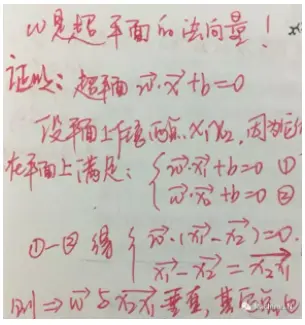 w是超平面的法向量！
证明：超平面 w⃗·x⃗+b=0
设平面上任意两点x₁x₂，因为它
在平面上满足：{ w⃗·x₁⃗+b=0 ①
w⃗·x₂⃗+b=0 ②
①-②得 { w⃗·(x₁⃗-x₂⃗)=0.
x₁⃗-x₂⃗=x₂x₁⃗
则⇒w⃗与x₂x₁⃗垂直，